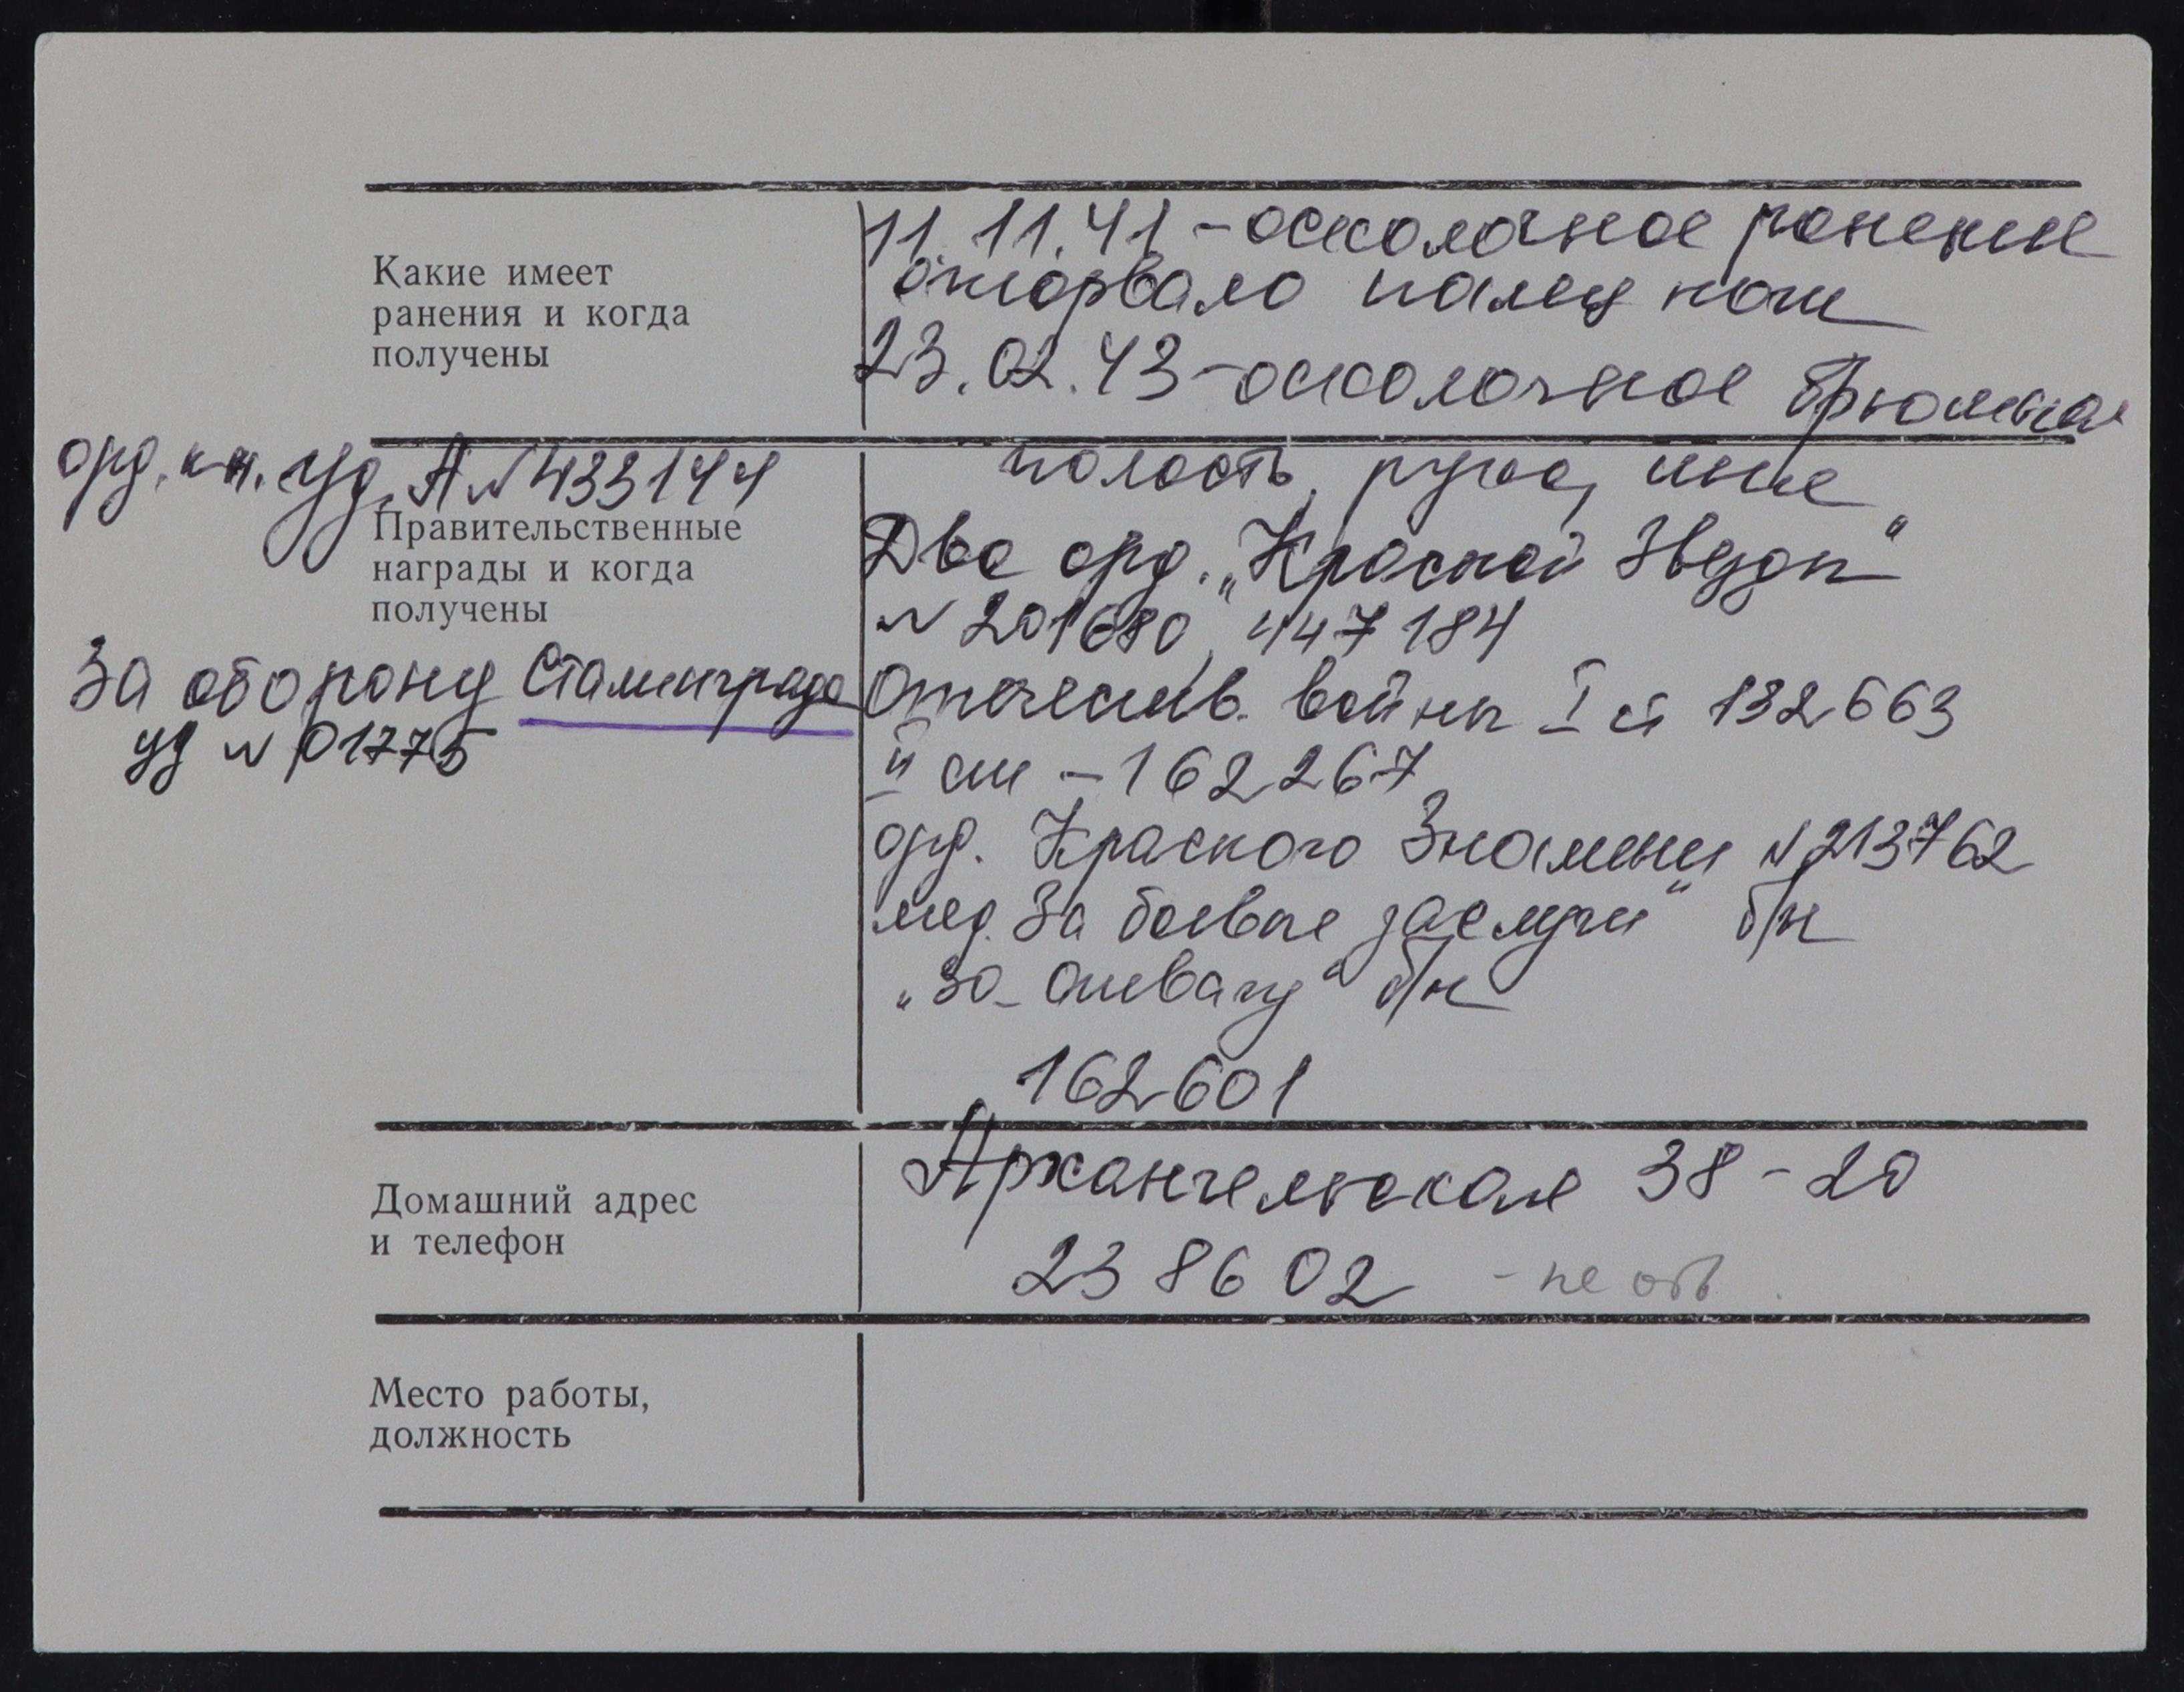 Какие имеет
ранения и когда
получены
11.11.41 - осколочное ранение
оторвало палец ноги
23.02.43 - осколочное брюшная
полость, рука, шея
орд. кн. уд. А № 433144
Правительственные
награды и когда
получены
За оборону Сталинграда
уд № 01775
Два орд. „Красной Звезды“
№ 201680, 447184
Отечеств. войны I ст 132663
II ст - 162267
орд. Красного Знамени № 213762
мед. За боевые заслуги“ б/н
„За отвагу“ б/н
162601
Домашний адрес
и телефон
Архангельская 38-20
238602 - не отв.
Место работы,
должность